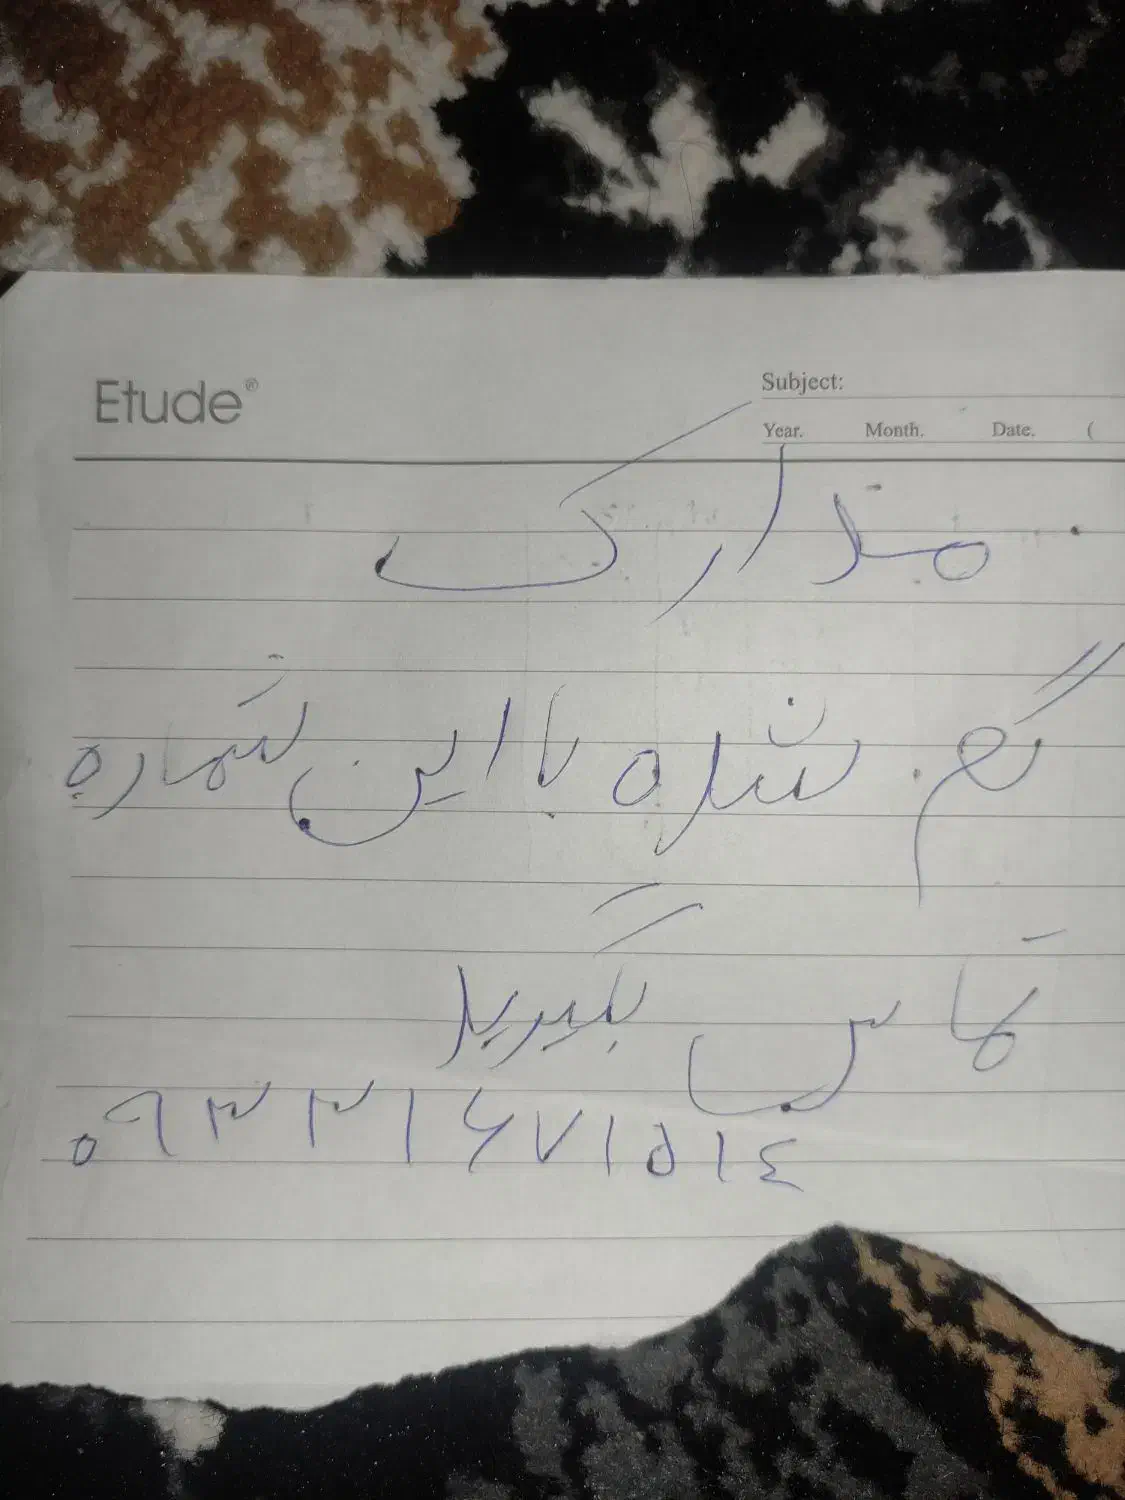 Etude®
Subject:
Year. Month. Date. (
مدارک
گم شده با این شماره
تماس بگیرید
۰۹۳۳۱۶۷۱۵۱٤